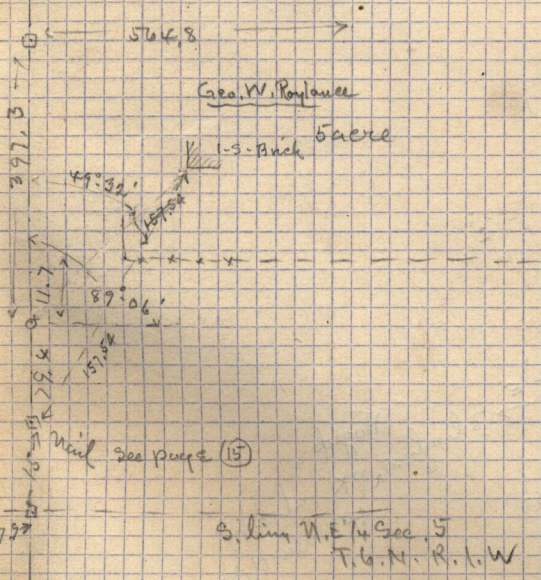 564.8
Geo. W. Roylance
5 acre
1-S-Brick
397.3
49°32'
157.54
11.7
89°06'
79.4
157.54
Nail See page 15
S. line N.E 1/4 Sec. 5
T. 6. N. R. 1. W